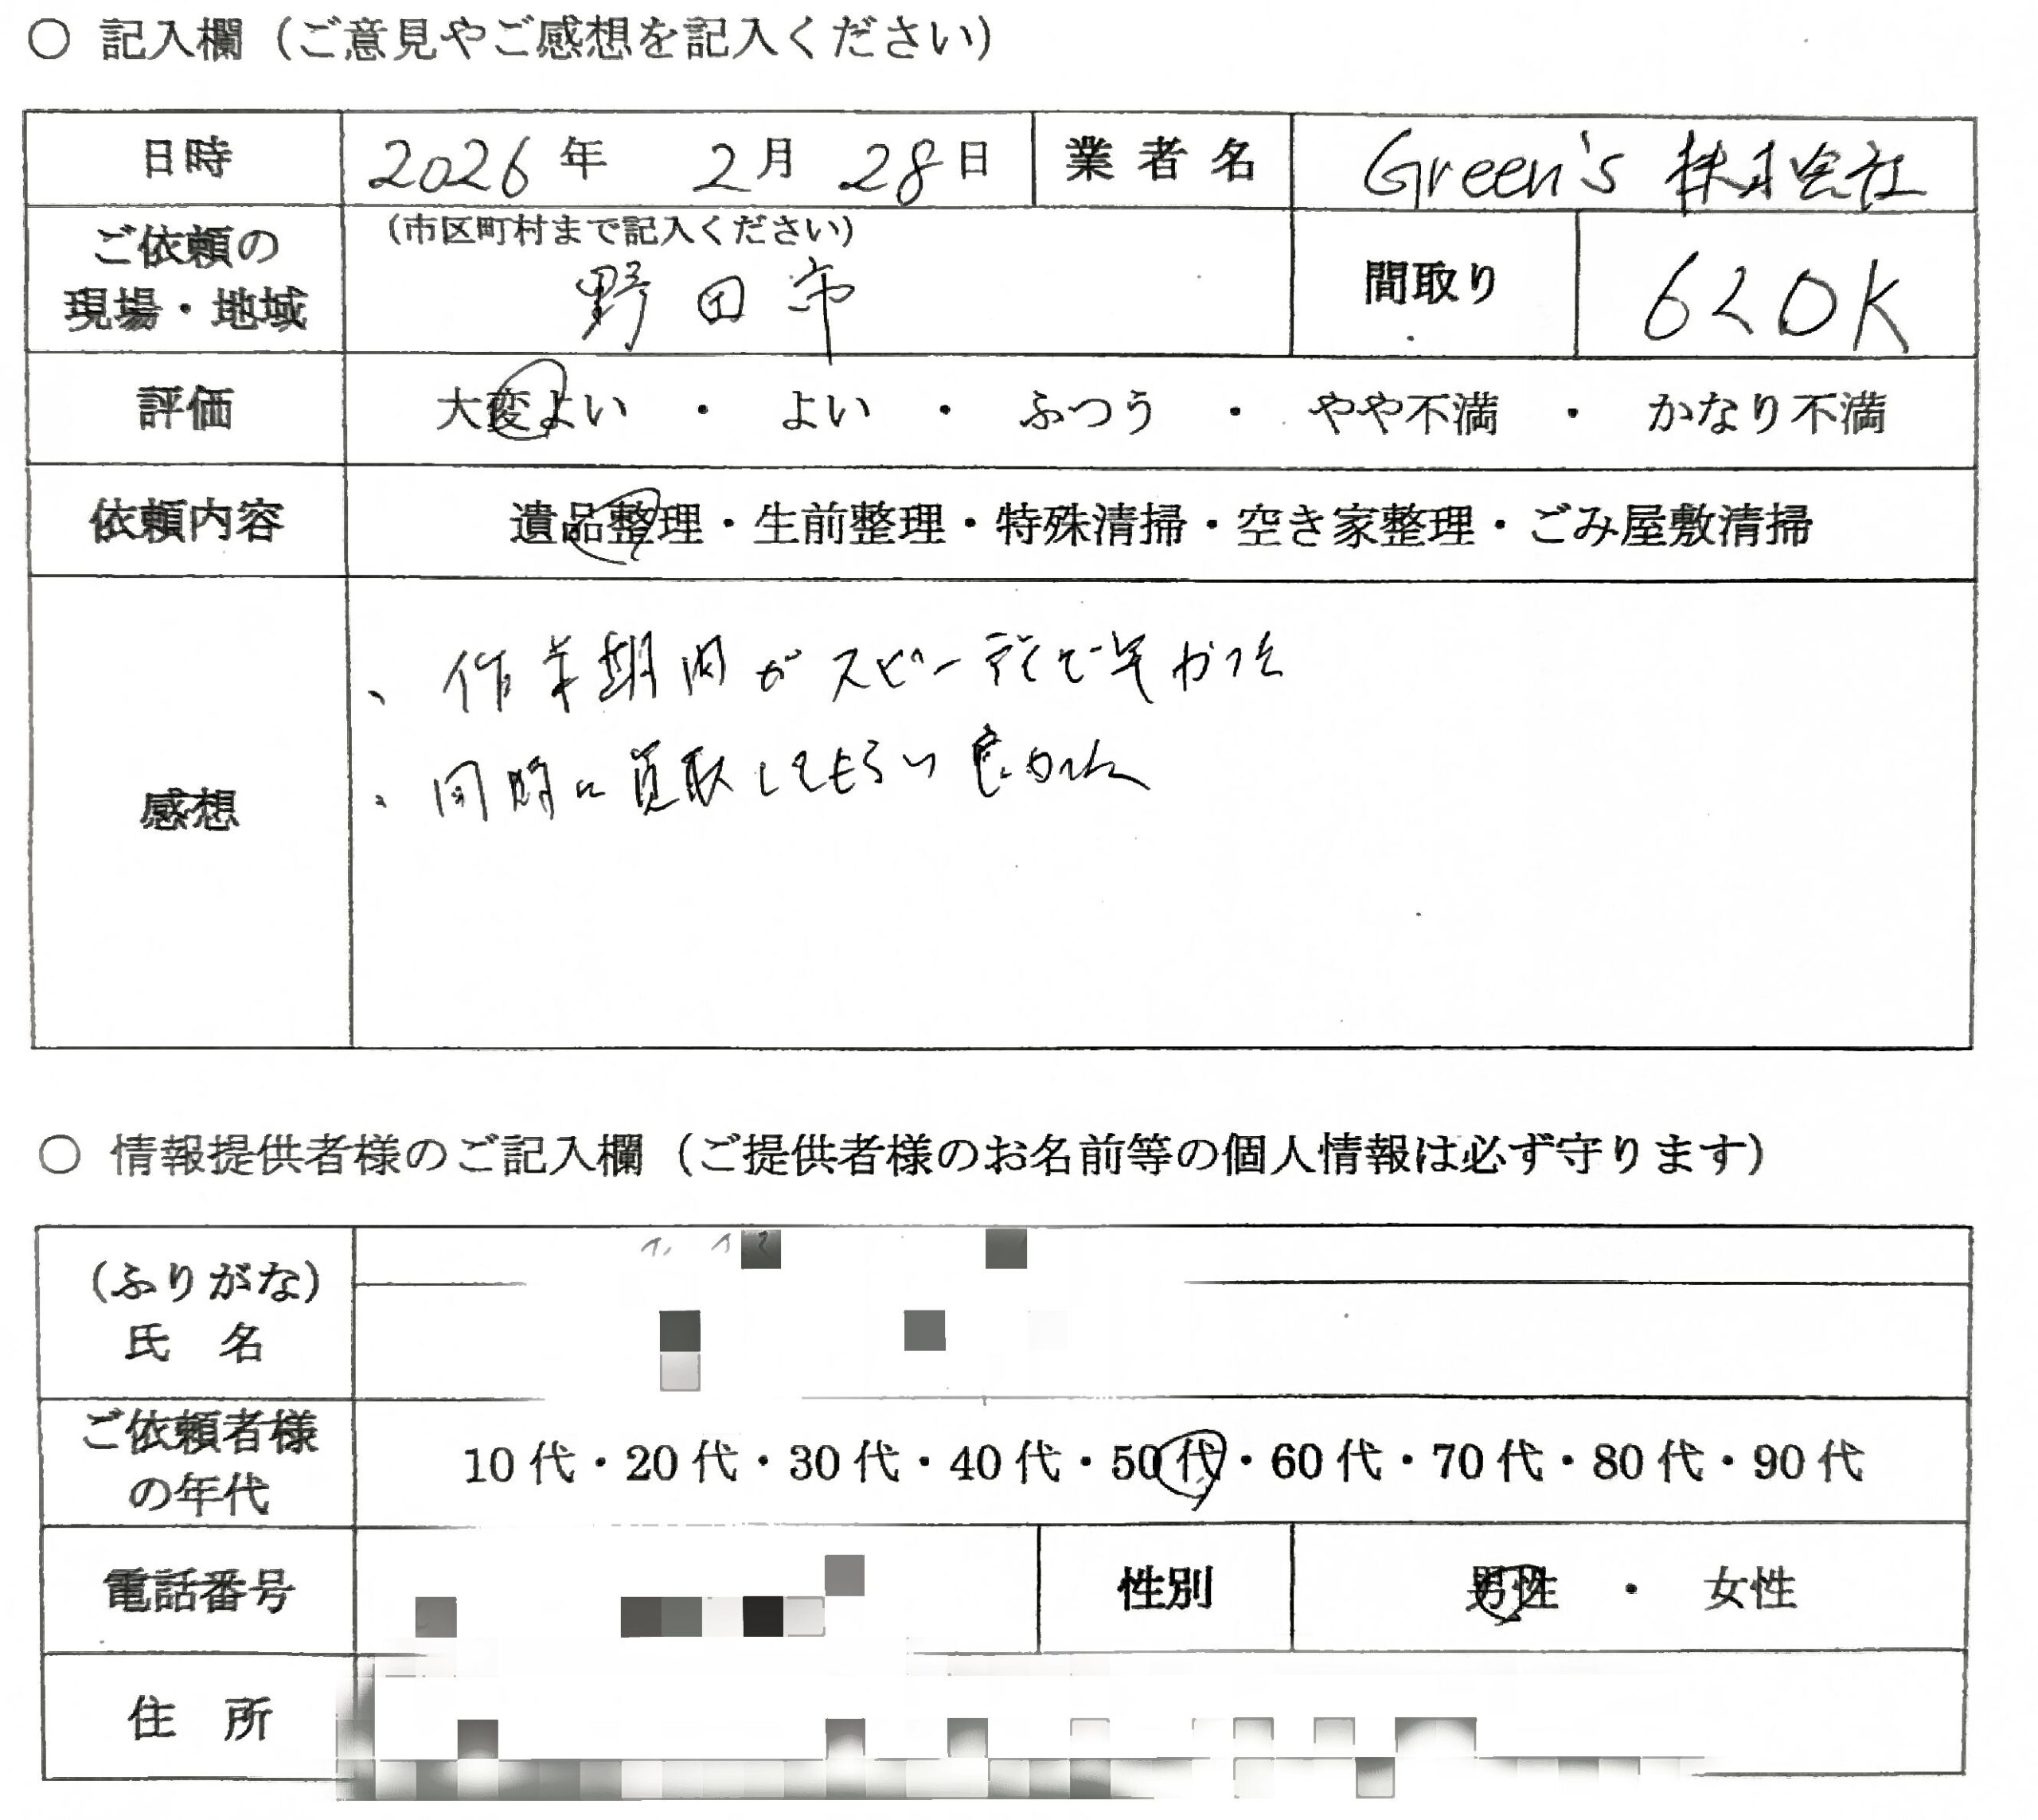 ○ 記入欄（ご意見やご感想を記入ください）
日時 2026年 2月 28日 業者名 Green's 株式会社
ご依頼の現場・地域 （市区町村まで記入ください） 野田市 間取り 6LDK
評価 大変よい ・ よい ・ ふつう ・ やや不満 ・ かなり不満
依頼内容 遺品整理・生前整理・特殊清掃・空き家整理・ごみ屋敷清掃
感想
、作業期間がスピーディで早かった
、同時に買取してもらい良かった
○ 情報提供者様のご記入欄（ご提供者様のお名前等の個人情報は必ず守ります）
（ふりがな）
氏 名
ご依頼者様の年代 10代・20代・30代・40代・50代・60代・70代・80代・90代
電話番号 性別 男性 ・ 女性
住 所